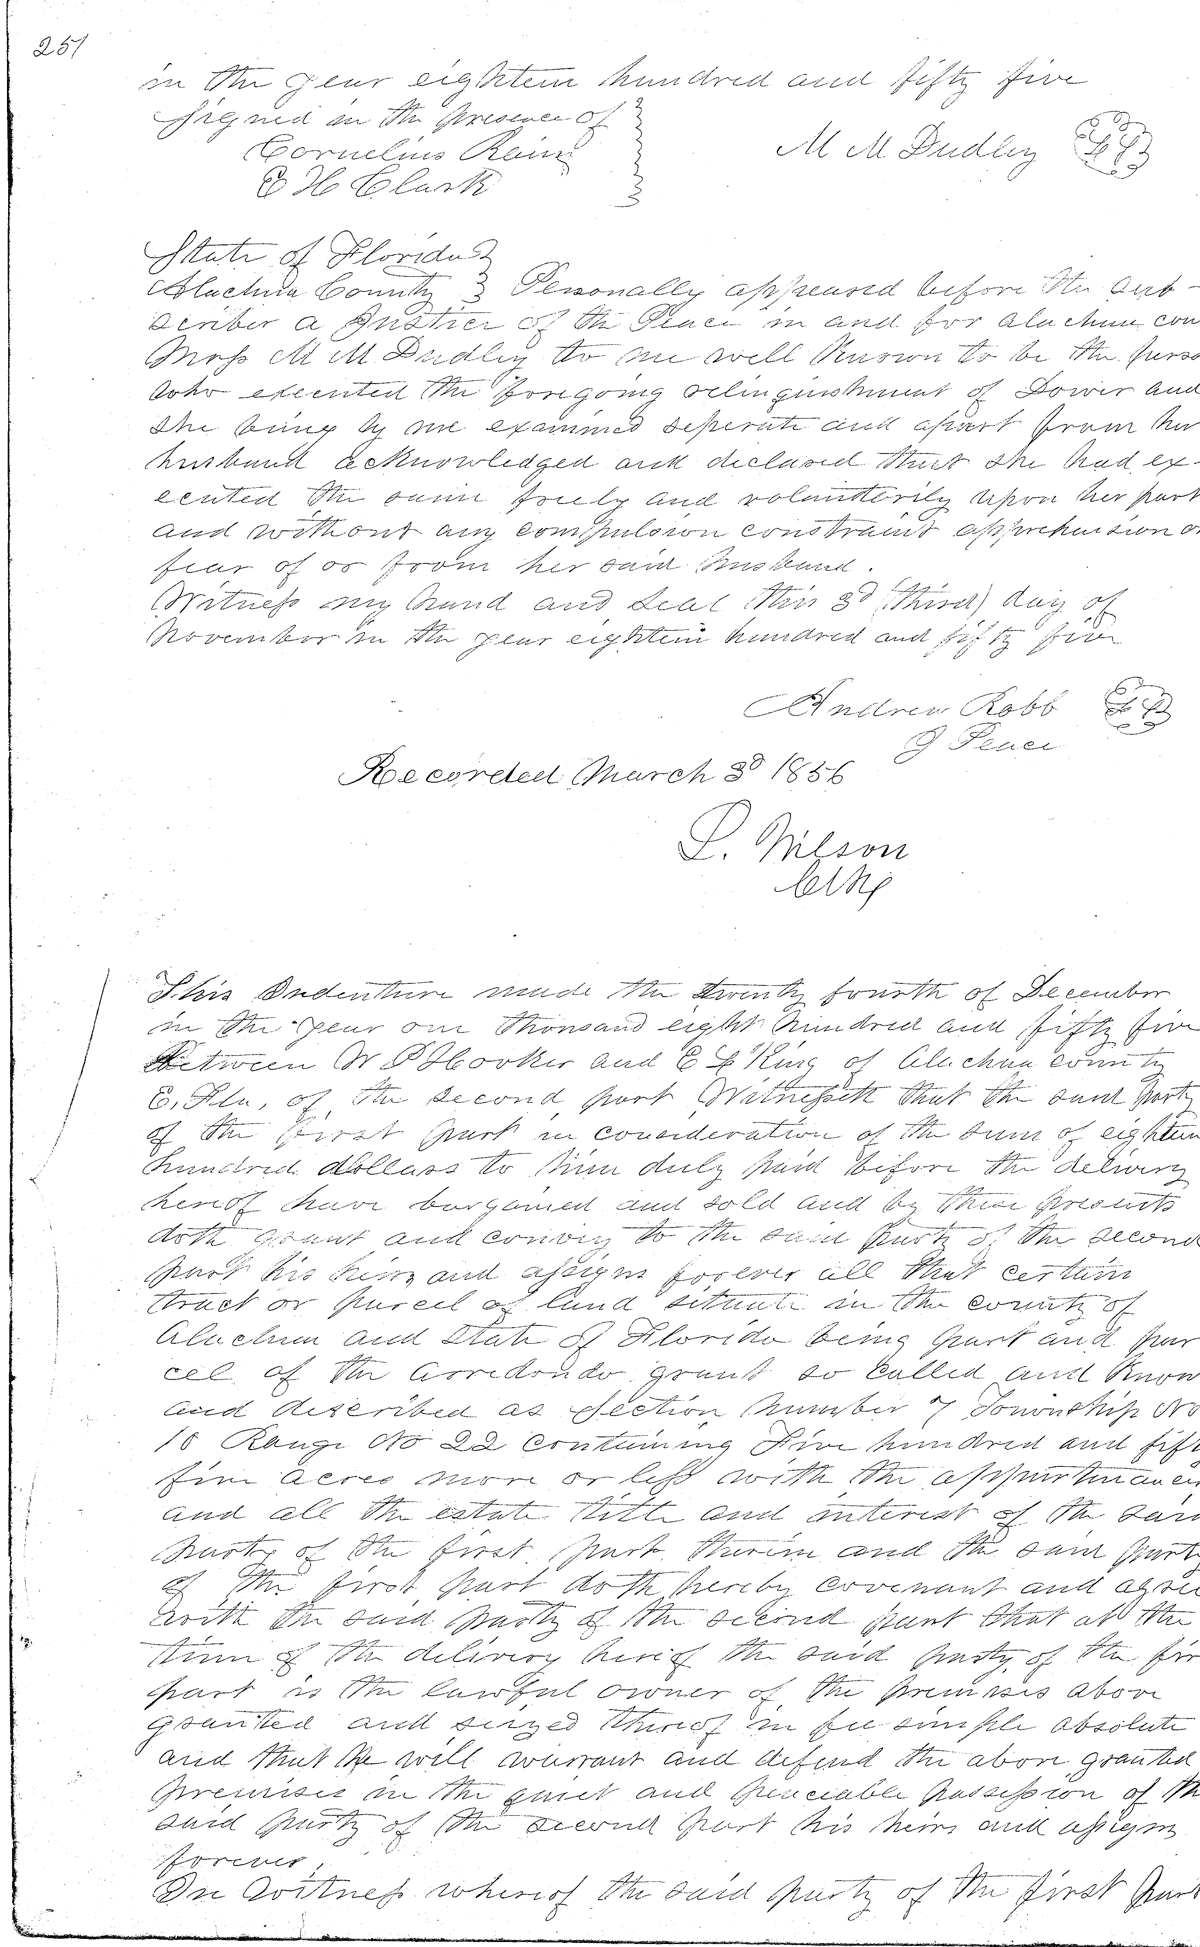 251
in the year eighteen hundred and fifty five
Signed in the presence of
Cornelius Rain
C H Clark
M M Dudley
State of Florida
Alachua County Personally appeared before the sub-
scriber a Justice of the Peace in and for Alachua con
Mrss M M Dudley to me well known to be the perso
who executed the foregoing relinquishment of Dower and
she being by me examined seperate and apart from her
husband acknowledged and declared that she had ex-
ecuted the same freely and voluntterily upon her part
and without any compulsion constraint apprehension or
fear of or from her said husband.
Witness my hand and seal this 3d (third) day of
November in the year eighteen hundred and fifty five
Andrew Robb
J Peace
Recorded March 3d 1856
L. Wilson
Clk
This Indenture made the twenty fourth of December
in the year one thousand eight hundred and fifty five
Between W P Hooker and E L King of Alachua county
E. Fla, of the second part Witnesseth that the said party
of the first part in consideration of the sum of eighteen
hundred dollars to him duly paid before the delivery
hereof have bargained and sold and by these presents
doth grant and convey to the said party of the second
part his heirs and assigns forever all that certain
tract or parcel of land situate in the county of
Alachua and State of Florida being part and par
cel of the Arredondo grant so called and know
and described as Section Number 7 Township No
10 Range No 22 containing Five hundred and fift
five acres more or less with the appurtenances
and all the estate title and interest of the said
party of the first part therein and the said party
of the first part doth hereby covenant and agree
with the said party of the second part that at the
time of the delivery hereof the said party of the fir
part is the lawful owner of the premises above
granted and seized thereof in fee simple absolute
and that he will warrant and defend the above granted
premises in the quiet and peaceable possession of th
said party of the second part his heirs and assigns
forever,
In Witness whereof the said party of the first part